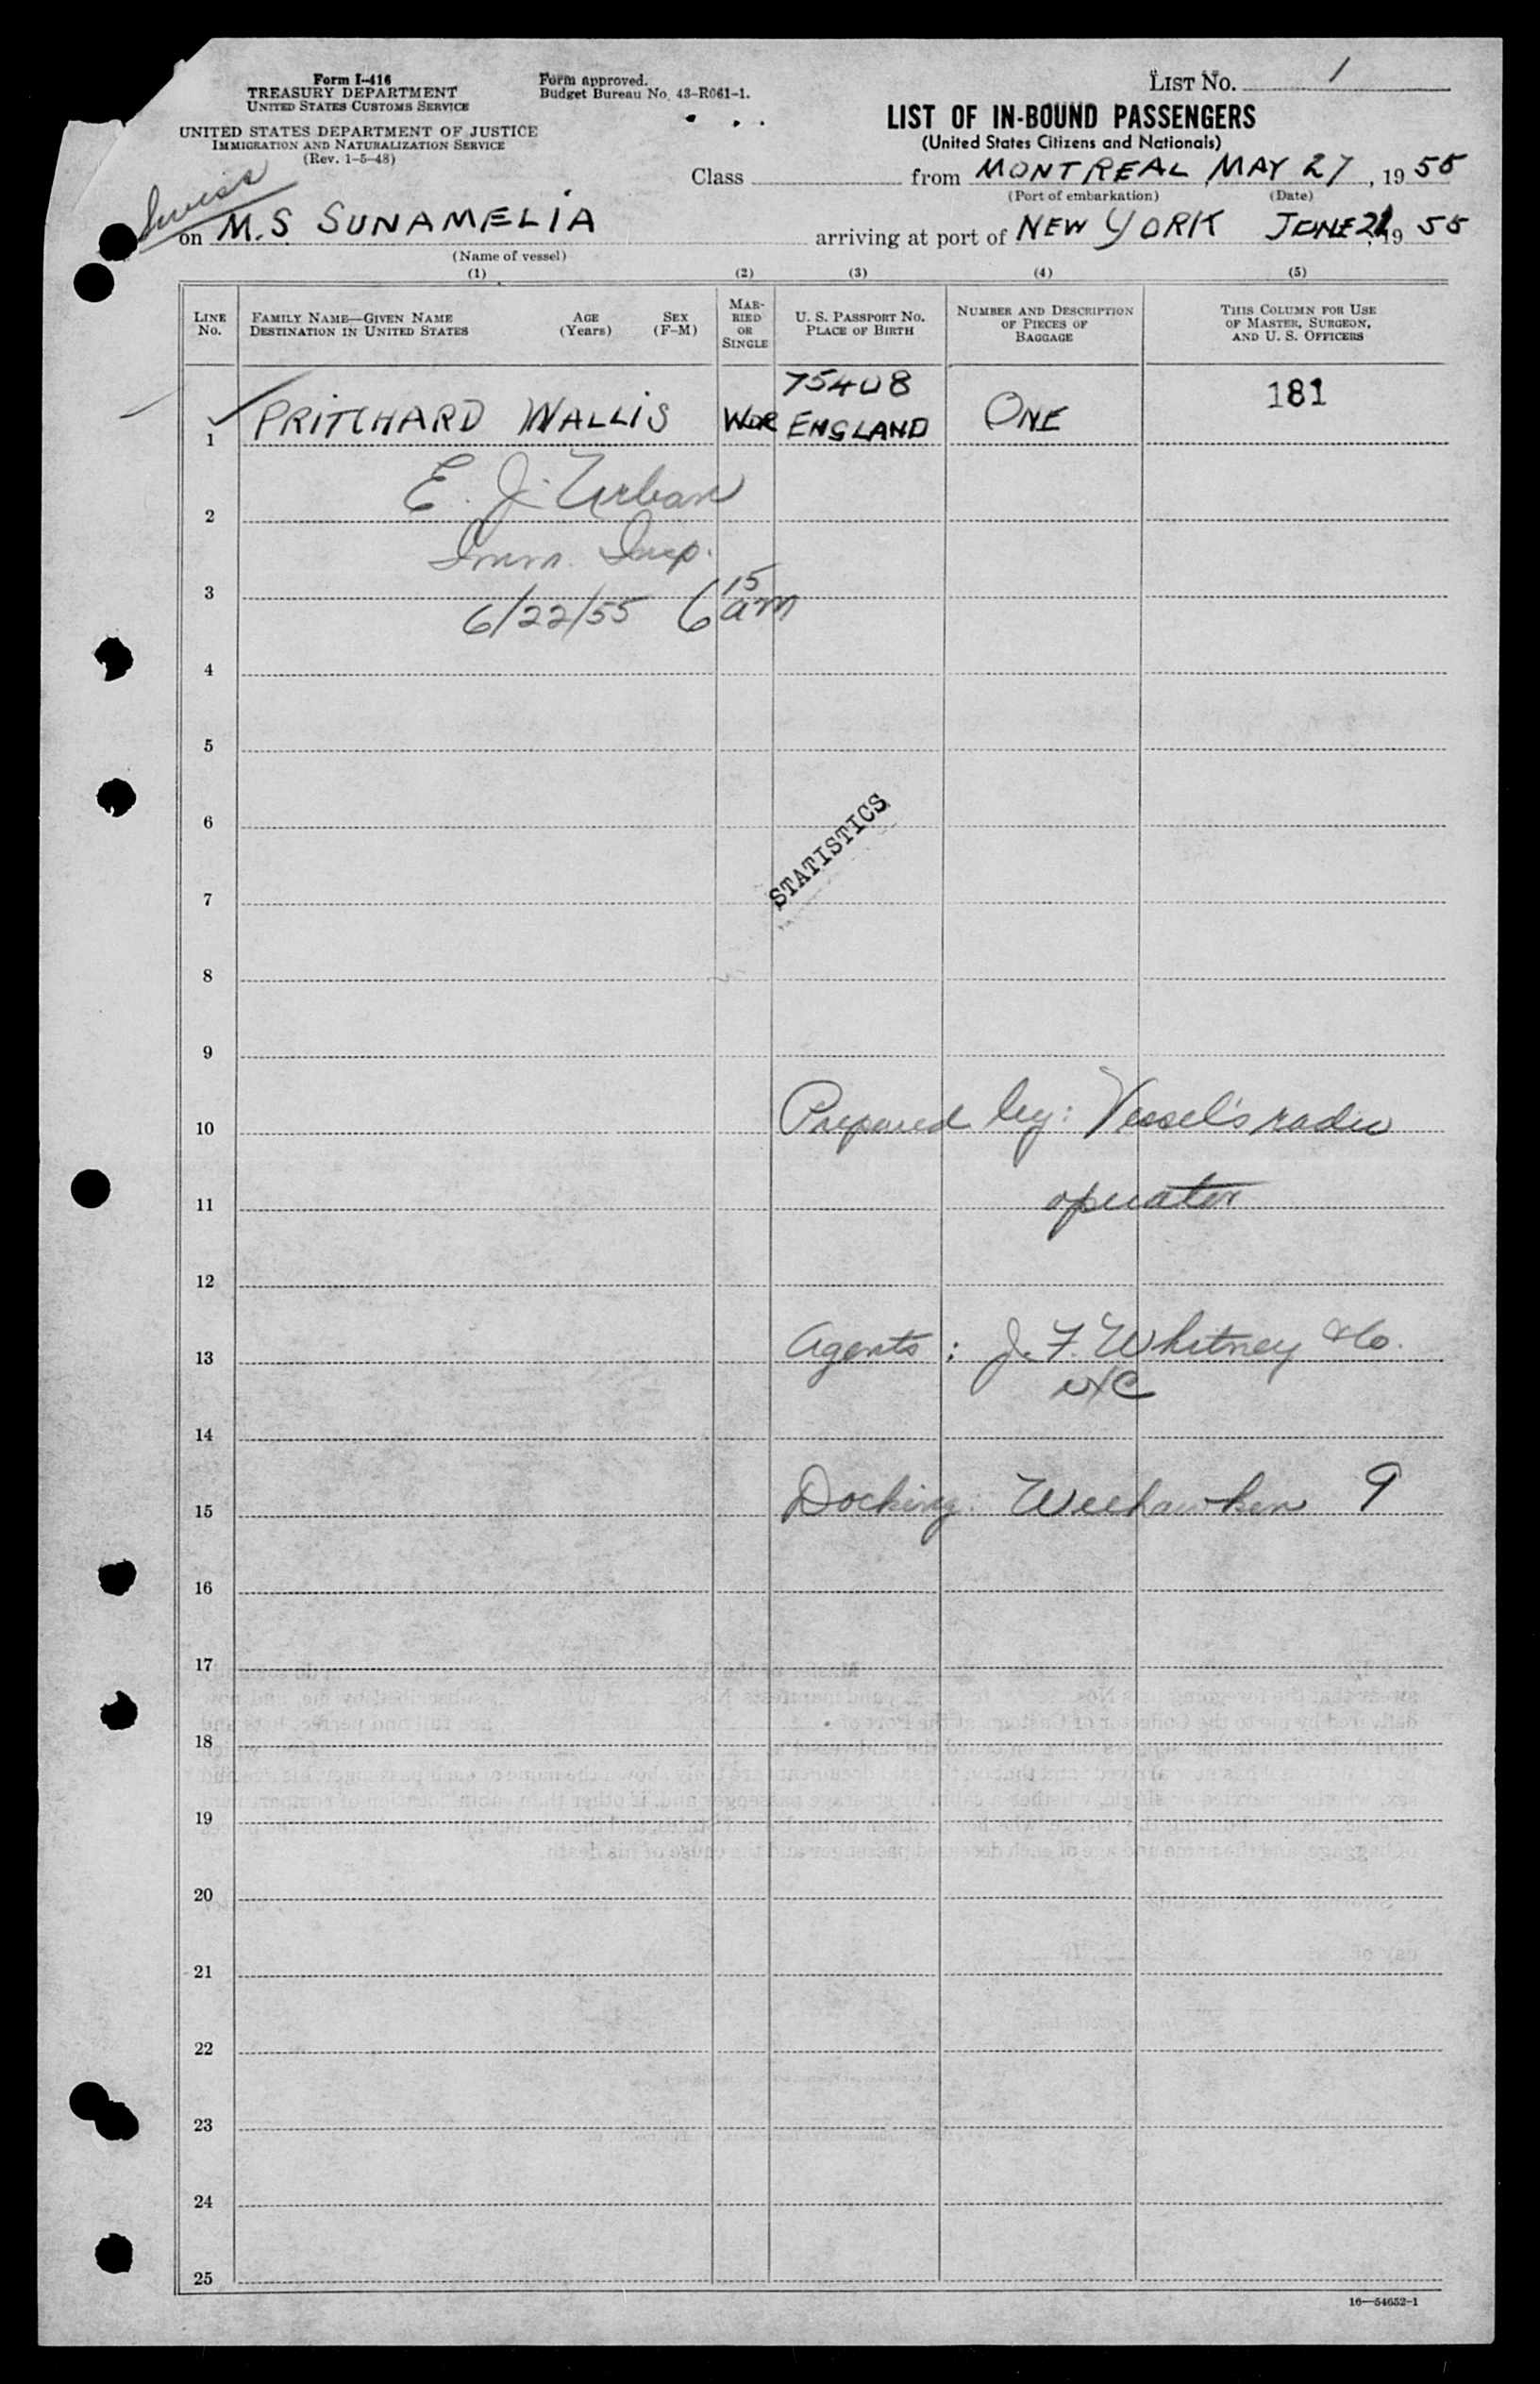 Form I-416
TREASURY DEPARTMENT
UNITED STATES CUSTOMS SERVICE
UNITED STATES DEPARTMENT OF JUSTICE
IMMIGRATION AND NATURALIZATION SERVICE
(Rev. 1-5-48)
Form approved.
Budget Bureau No. 43-R061-1.
LIST No. 1
LIST OF IN-BOUND PASSENGERS
(United States Citizens and Nationals)
Class from MONTREAL MAY 27, 1955
(Port of embarkation) (Date)
Swiss
on M.S SUNAMELIA arriving at port of NEW YORK JUNE 21, 1955
(Name of vessel)
(1) (2) (3) (4) (5)
LINE No. FAMILY NAME—GIVEN NAME DESTINATION IN UNITED STATES AGE (Years) SEX (F-M) MARRIED OR SINGLE U. S. PASSPORT No. PLACE OF BIRTH NUMBER AND DESCRIPTION OF PIECES OF BAGGAGE THIS COLUMN FOR USE OF MASTER, SURGEON, AND U. S. OFFICERS
75408 181
1 PRITCHARD WALLIS WDR ENGLAND ONE
E. J. Urban
2
Imm. Insp.
3
6/22/55 6 15 am
4
5
6
STATISTICS
7
8
9
10 Prepared by: Vessel's radio
11 operator
12
13 Agents: J. F. Whitney & Co.
14
15 Docking: Weehawken 9
16
17
18
19
20
21
22
23
24
25
16—54652-1